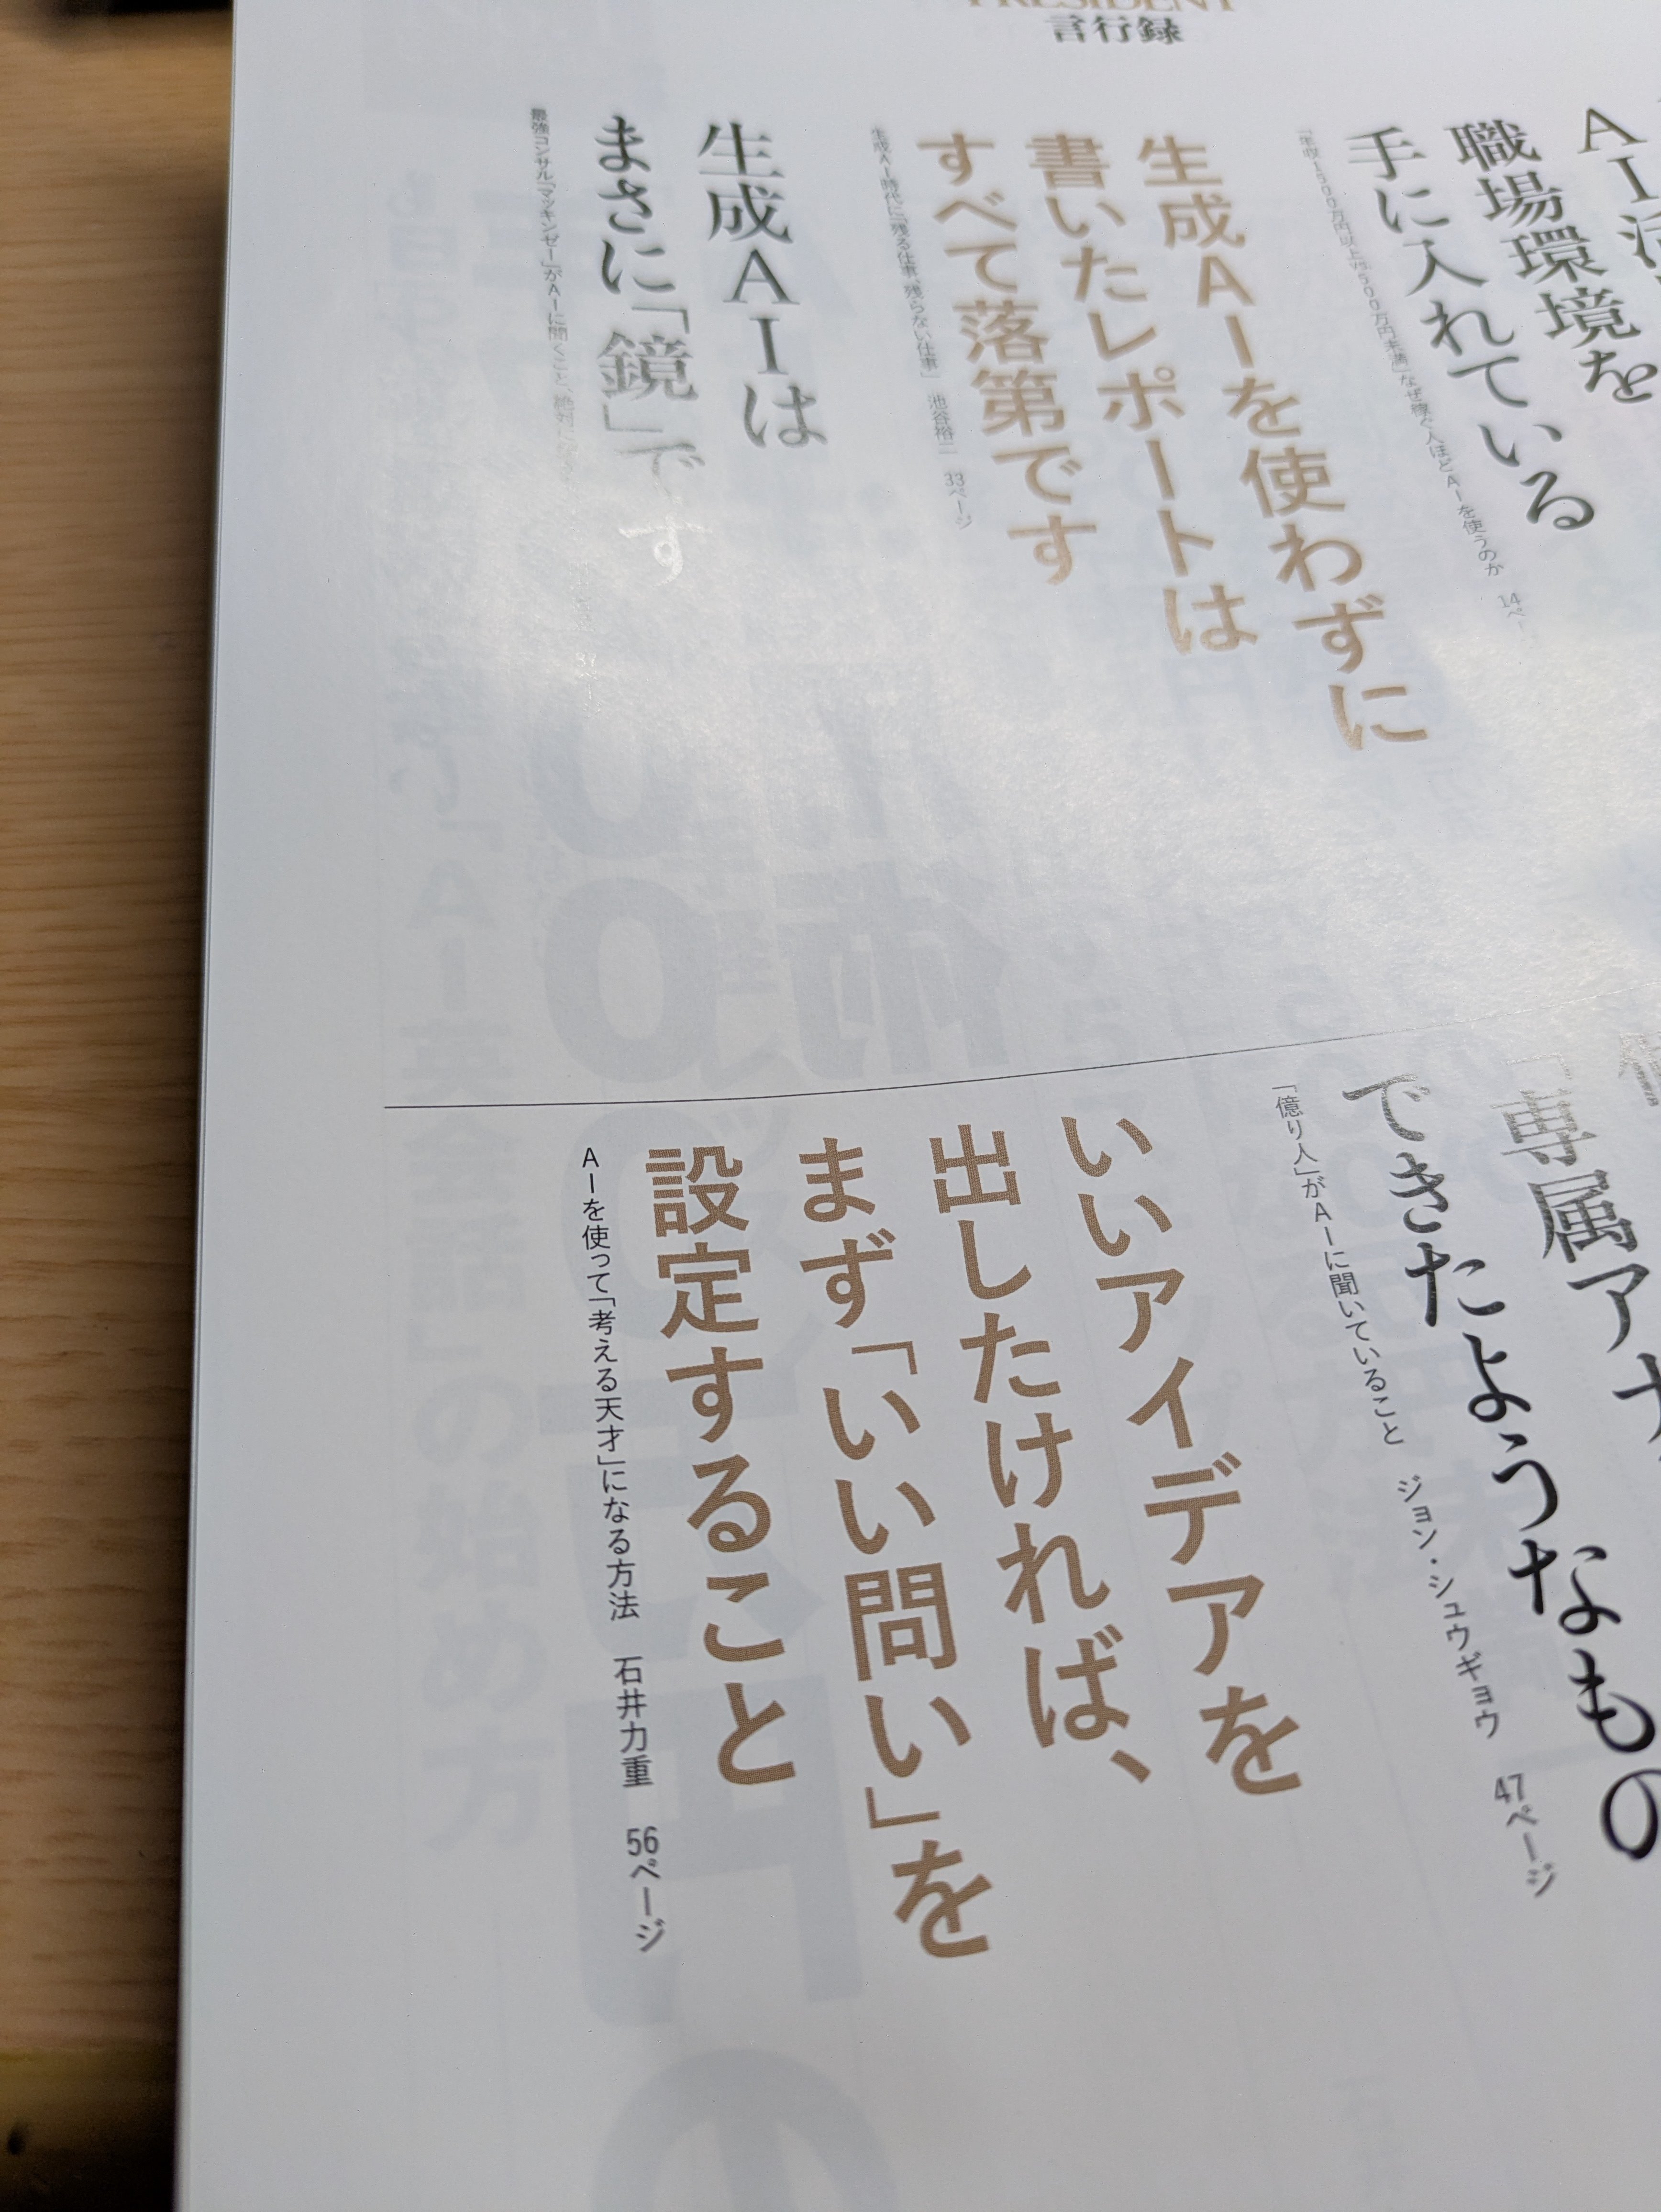 PRESIDENT
言行録
職場環境を
手に入れている
「年収1500万円以上vs.500万円未満」なぜ稼ぐ人ほどAIを使うのか 14ペ
生成AIを使わずに
書いたレポートは
すべて落第です
生成AI時代に「残る仕事、残らない仕事」 池谷裕二 33ページ
生成AIは
まさに「鏡」です
最強コンサル「マッキンゼー」がAIに聞くこと、絶対に
「専属アナ
できたようなもの
「億り人」がAIに聞いていること ジョン・シュウギョウ 47ページ
いいアイデアを
出したければ、
まず「いい問い」を
設定すること
AIを使って「考える天才」になる方法 石井力重 56ページ